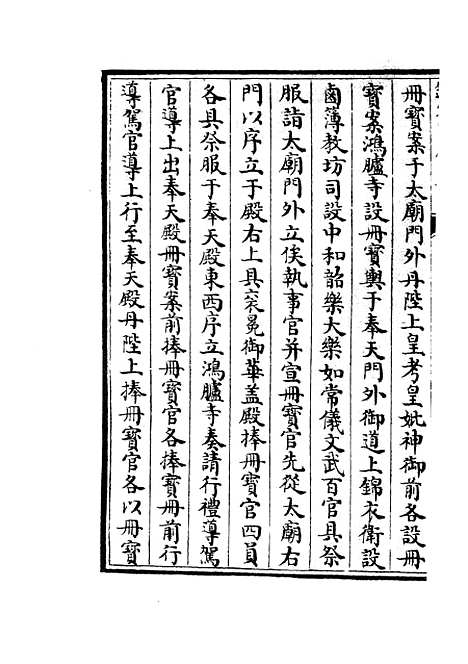 冊寳案于太廟門外丹陛上皇考皇妣神御前各設冊
寳案鴻臚寺設冊寳輿于奉天門外御道上錦衣衛設
鹵簿教坊司設中和韶樂大樂如常儀文武百官具祭
服詣太廟門外立俟執事官并宣冊寳官先從太廟右
門以序立于殿右上具衮冕御華盖殿捧冊寳官四員
各具祭服于奉天殿東西序立鴻臚寺奏請行禮導駕
官導上出奉天殿冊寳案前捧冊寳官各捧寳冊前行
導駕官導上行至奉天殿丹陛上捧冊寳官各以冊寳